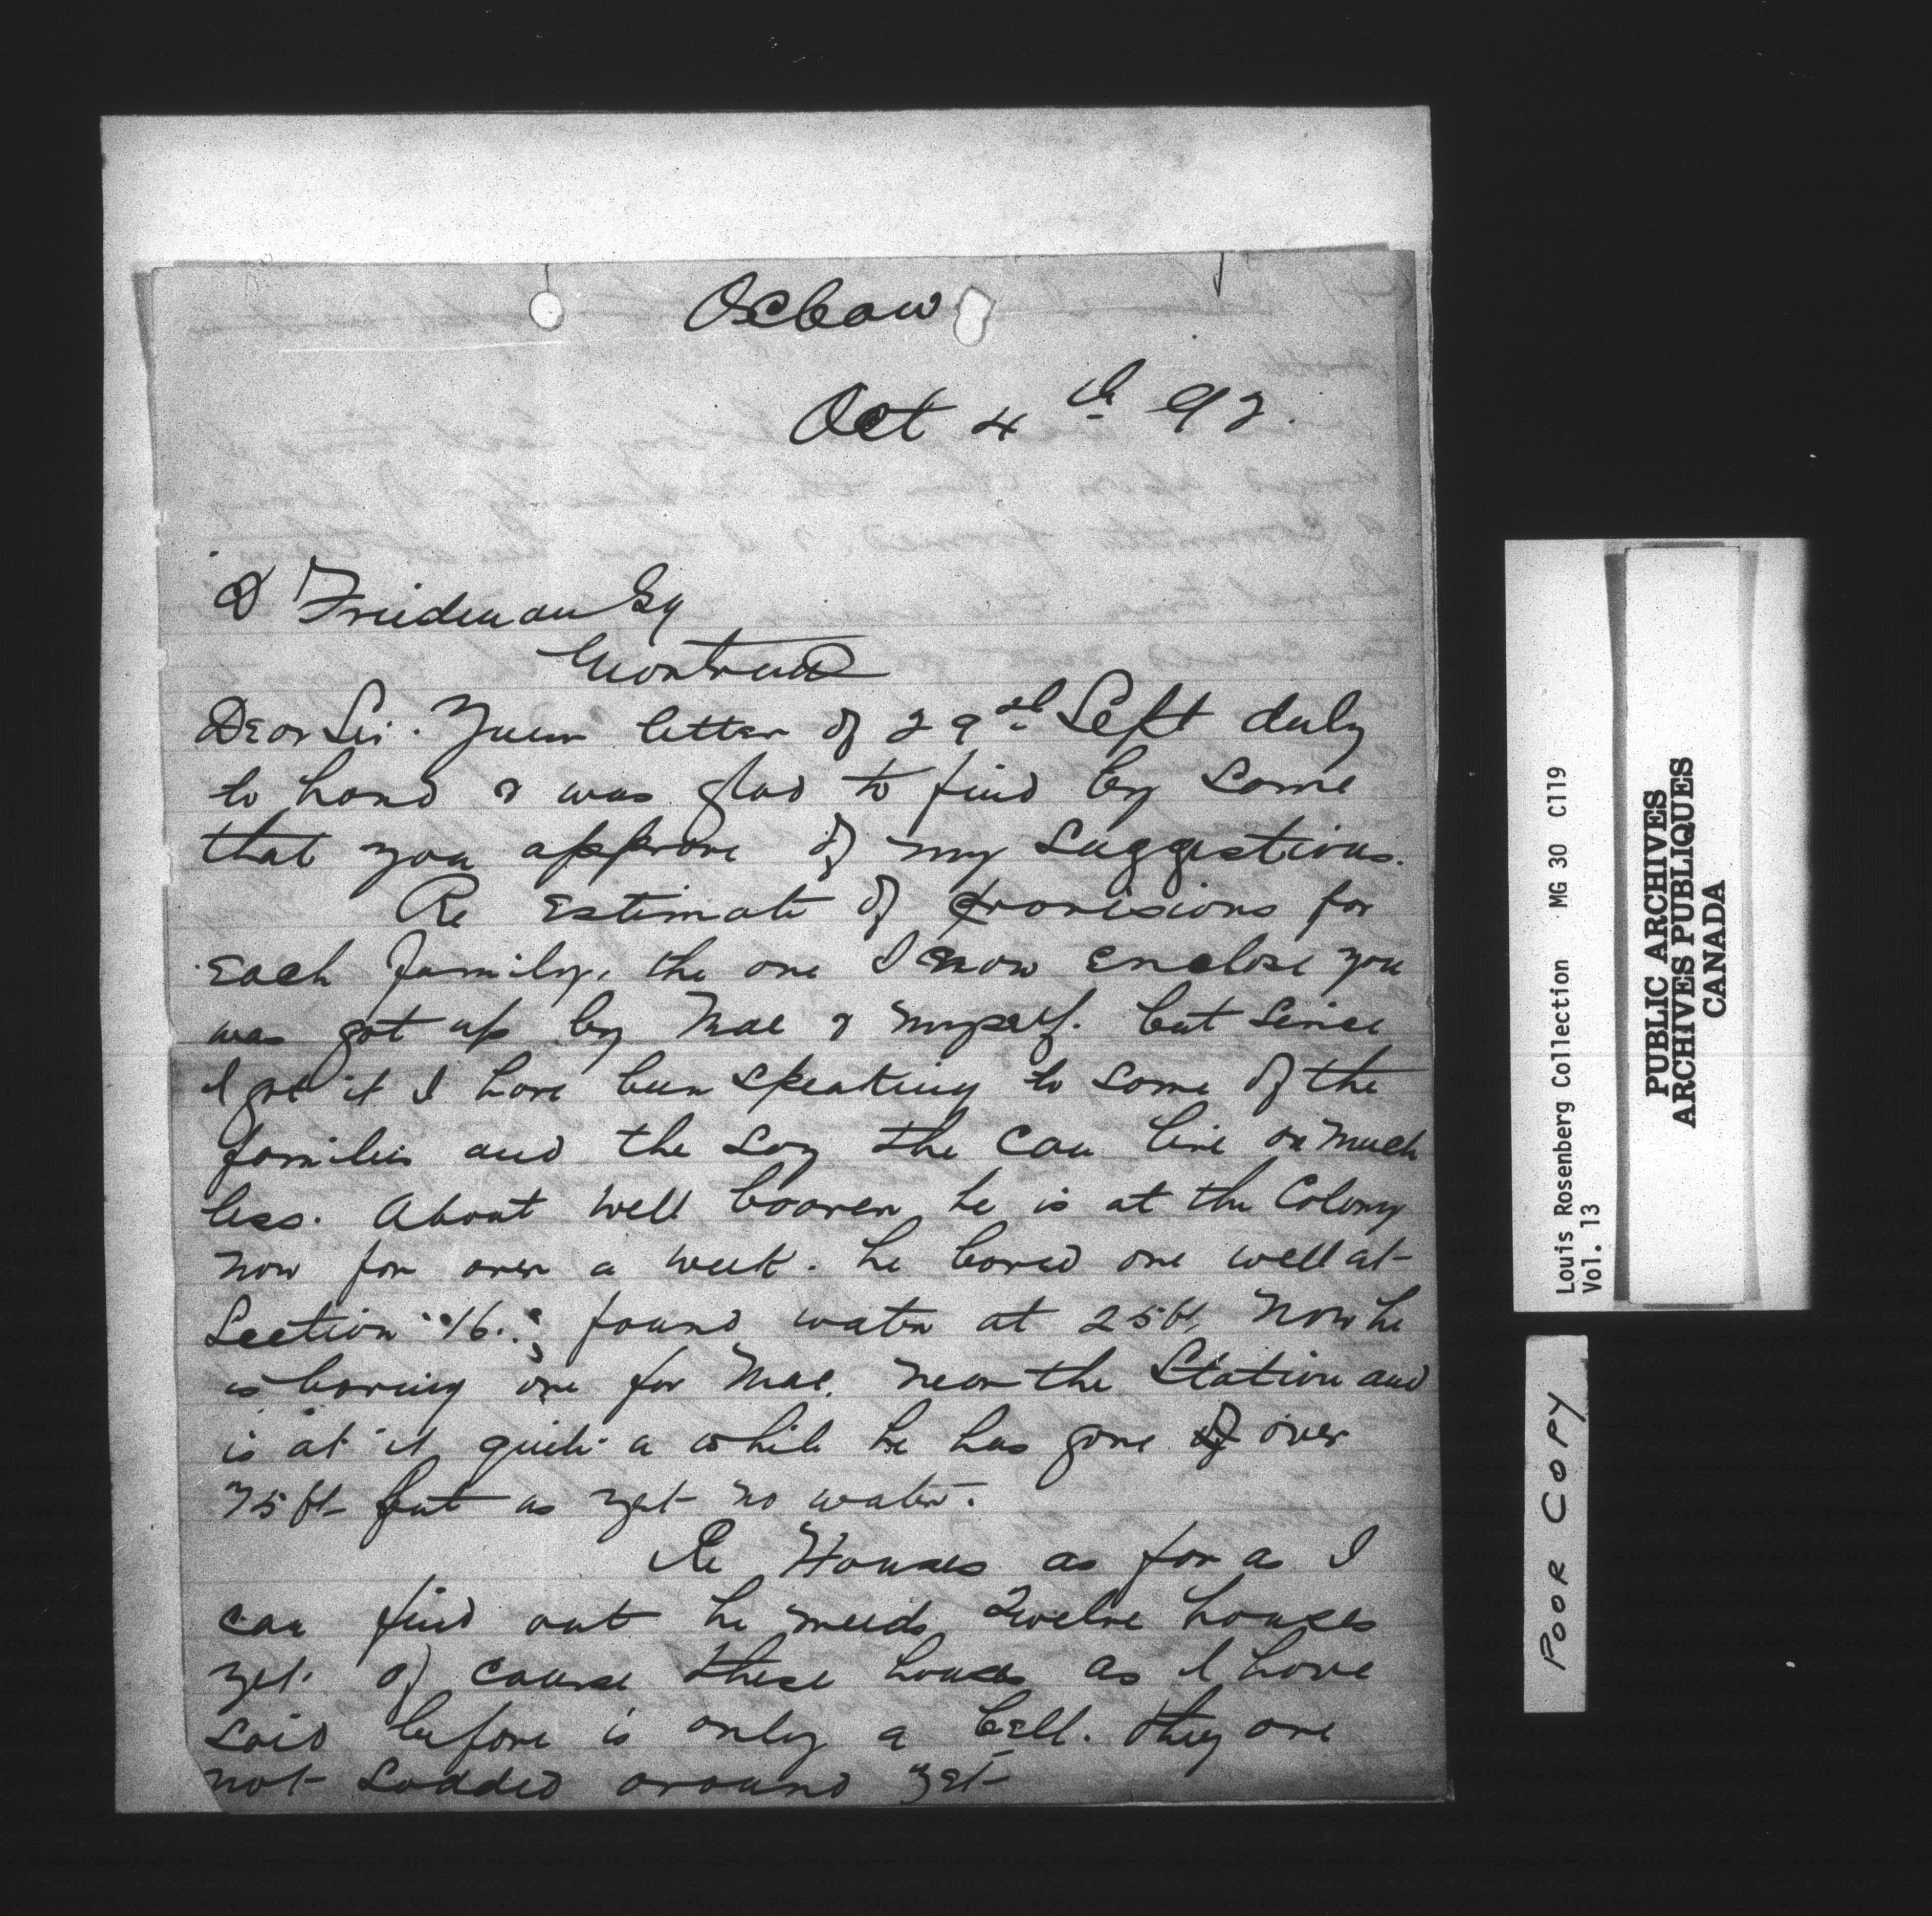 Oxbow
Oct 4th 92.
D Friedman Esq
Montreal
Dear Sir. Your letter of 29th Sept duly
to hand & was glad to find by same
that you approve of my suggestions.
Re Estimate of provisions for
Each family, the one I now Enclose you
was got up by Mac & myself. but since
I got it I have been speaking to some of the
families and the say the can live on much
less. About well boorer he is at the Colony
now for over a week. he bored one well at
Section "16." found water at 25 ft, now he
is boring one for Mac. near the Station and
is at it quite a while he has gone over
75 ft but as yet no water.
Re Houses as far as I
can find out he needs Twelve houses
yet. of course these houses as I have
said before is only a . they are
not sodded around yet
Louis Rosenberg Collection MG 30 C119
Vol. 13
PUBLIC ARCHIVES
ARCHIVES PUBLIQUES
CANADA
POOR COPY